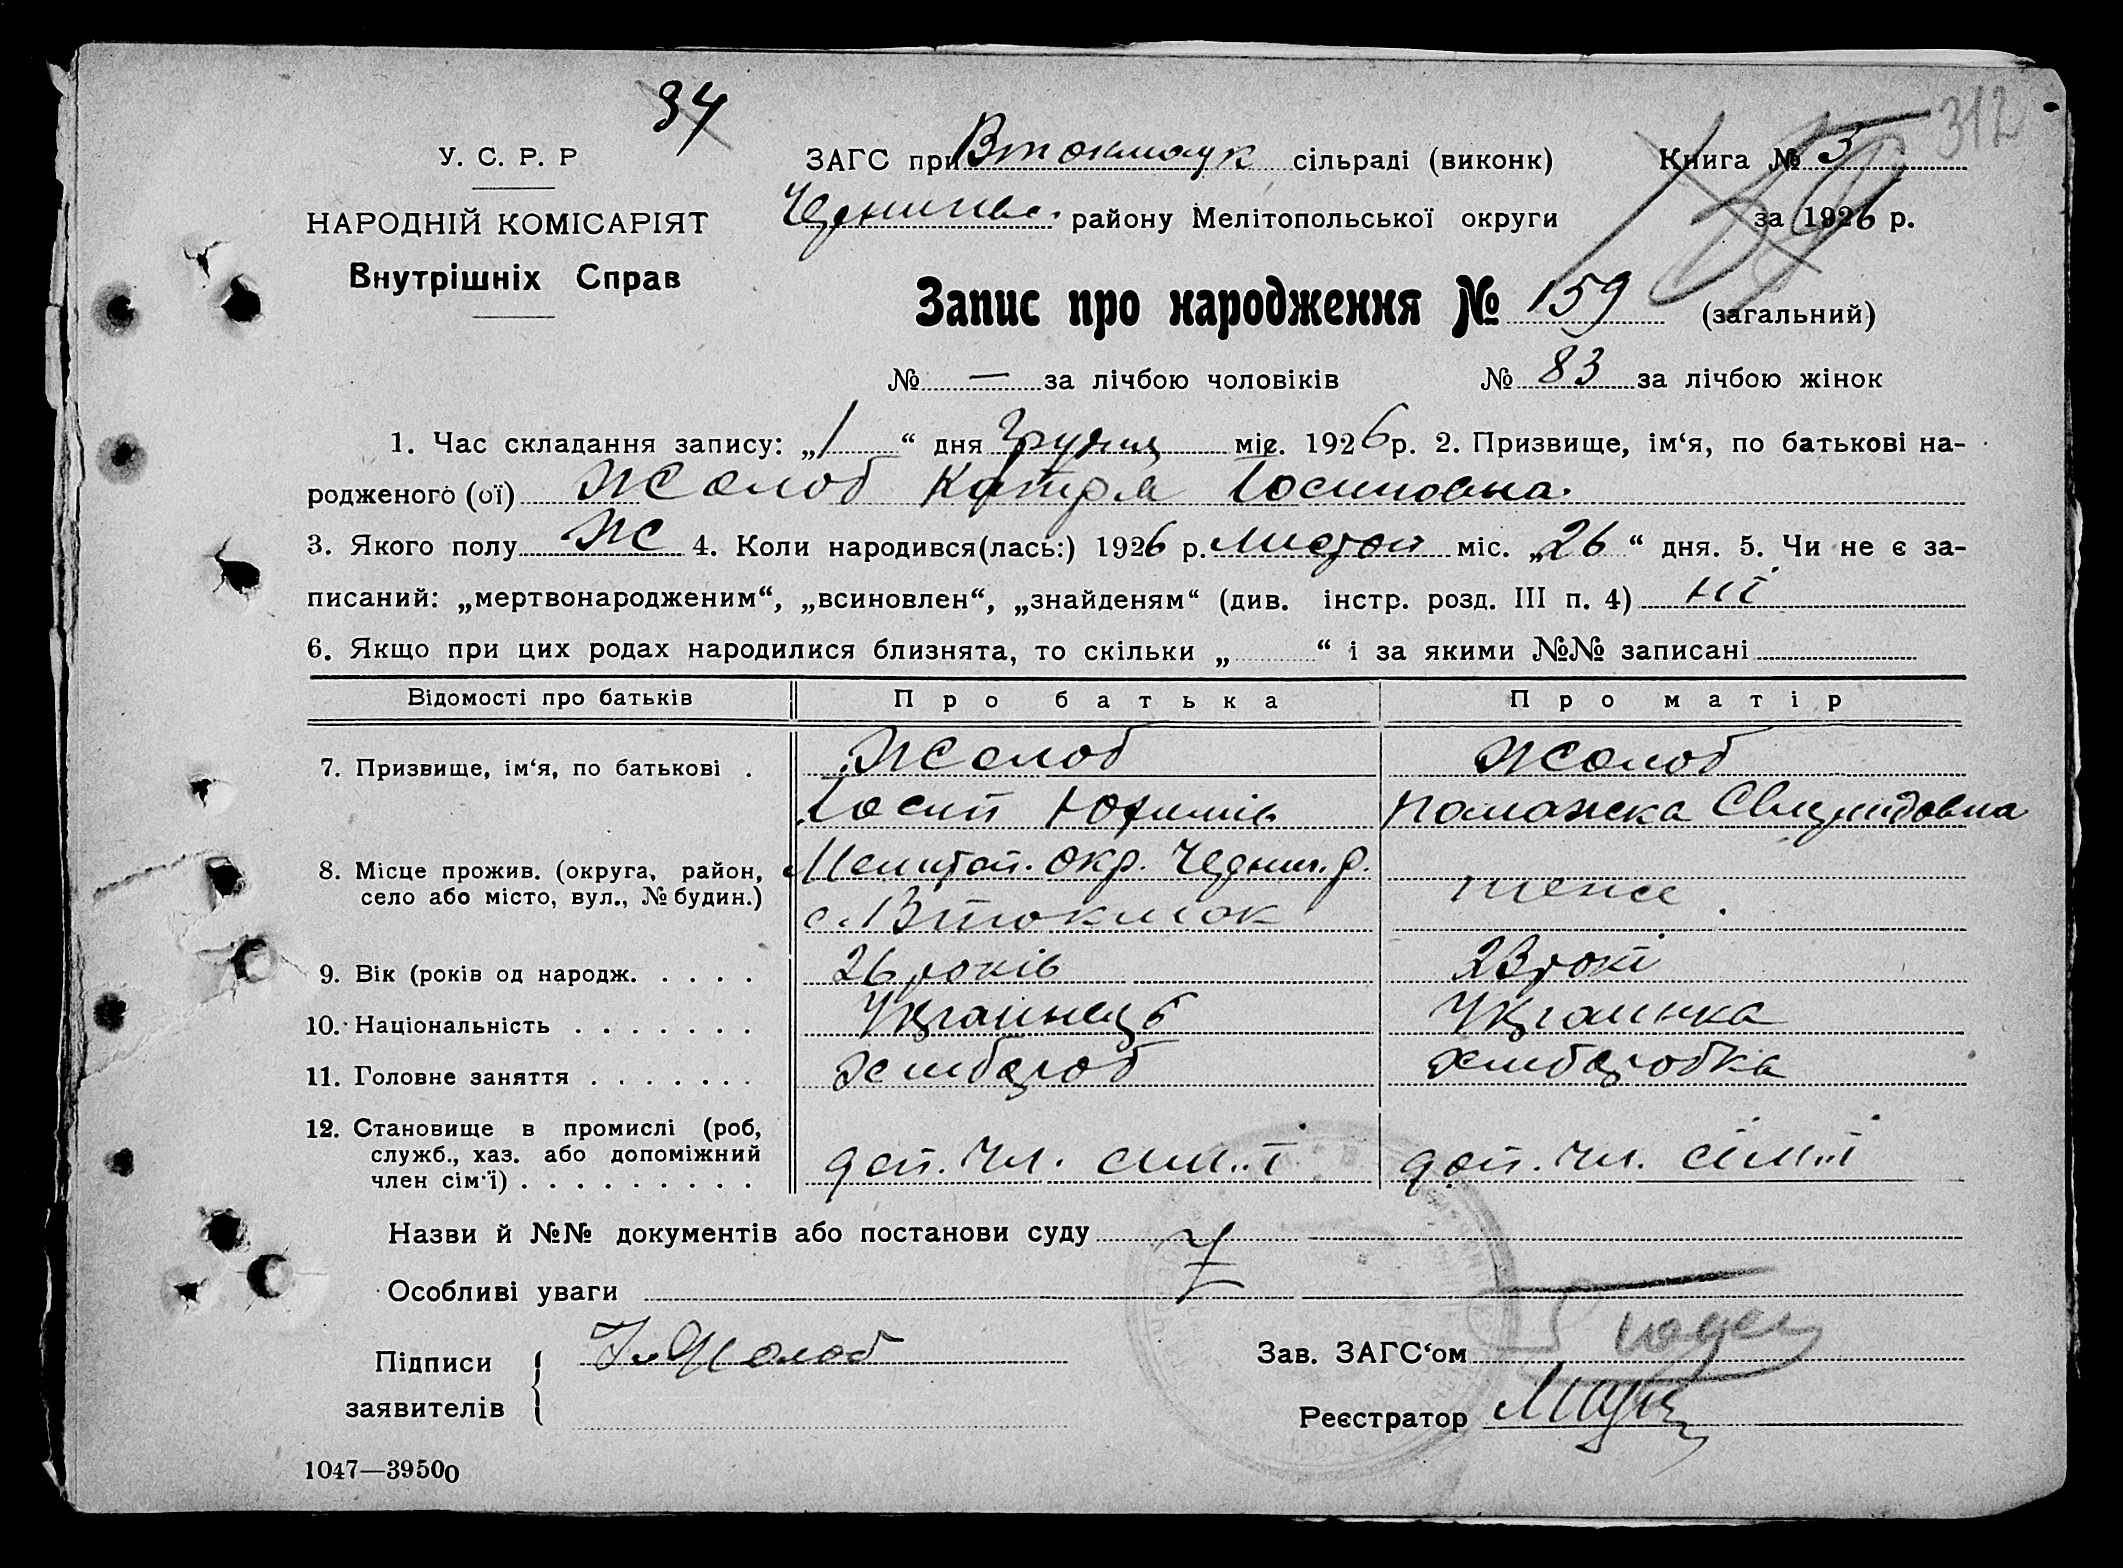 34
312
У. С. Р. Р
НАРОДНІЙ КОМІСАРІЯТ
Внутрішніх Справ
ЗАГС при Втокмацк сільраді (виконк) Книга № 3
Чернигвс. району Мелітопольської округи за 1926 р.
Запис про народження № 159 (загальний)
№ — за лічбою чоловіків № 83 за лічбою жінок
1. Час складання запису: „1“ дня Грудня міс. 1926 р. 2. Призвище, ім‘я, по батькові на-
родженого (ої) Жолоб Катря Іосиповна.
3. Якого полу Ж 4. Коли народився(лась:) 1926 р. Листоп міс. „26“ дня. 5. Чи не є за-
писаний: „мертвонародженим“, „всиновлен“, „знайденям“ (див. інстр. розд. III п. 4) ні
6. Якщо при цих родах народилися близнята, то скільки „ “ і за якими №№ записані
Відомості про батьків Про батька Про матір
7. Призвище, ім‘я, по батькові . Жолоб Жолоб
Іосип Юхимів Поможска
8. Місце прожив. (округа, район, Мелитоп. окр. Черниг. р.
село або місто, вул., № будин.) с. Втокмак теже.
9. Вік (років од народж. . . . . 26 років 23 роки
10. Національність . . . . . . . Українець Українка
11. Головне заняття . . . . . . . хлибороб хлиборобка
12. Становище в промислі (роб,
служб., хаз. або допоміжний доп. чл. сим.ї доп. чл. сім.ї
член сім‘ї) . . . . . . . . .
Назви й №№ документів або постанови суду
Особливі уваги
Підписи Жолоб Зав. ЗАГС‘ом
заявителів Реєстратор
1047—39500